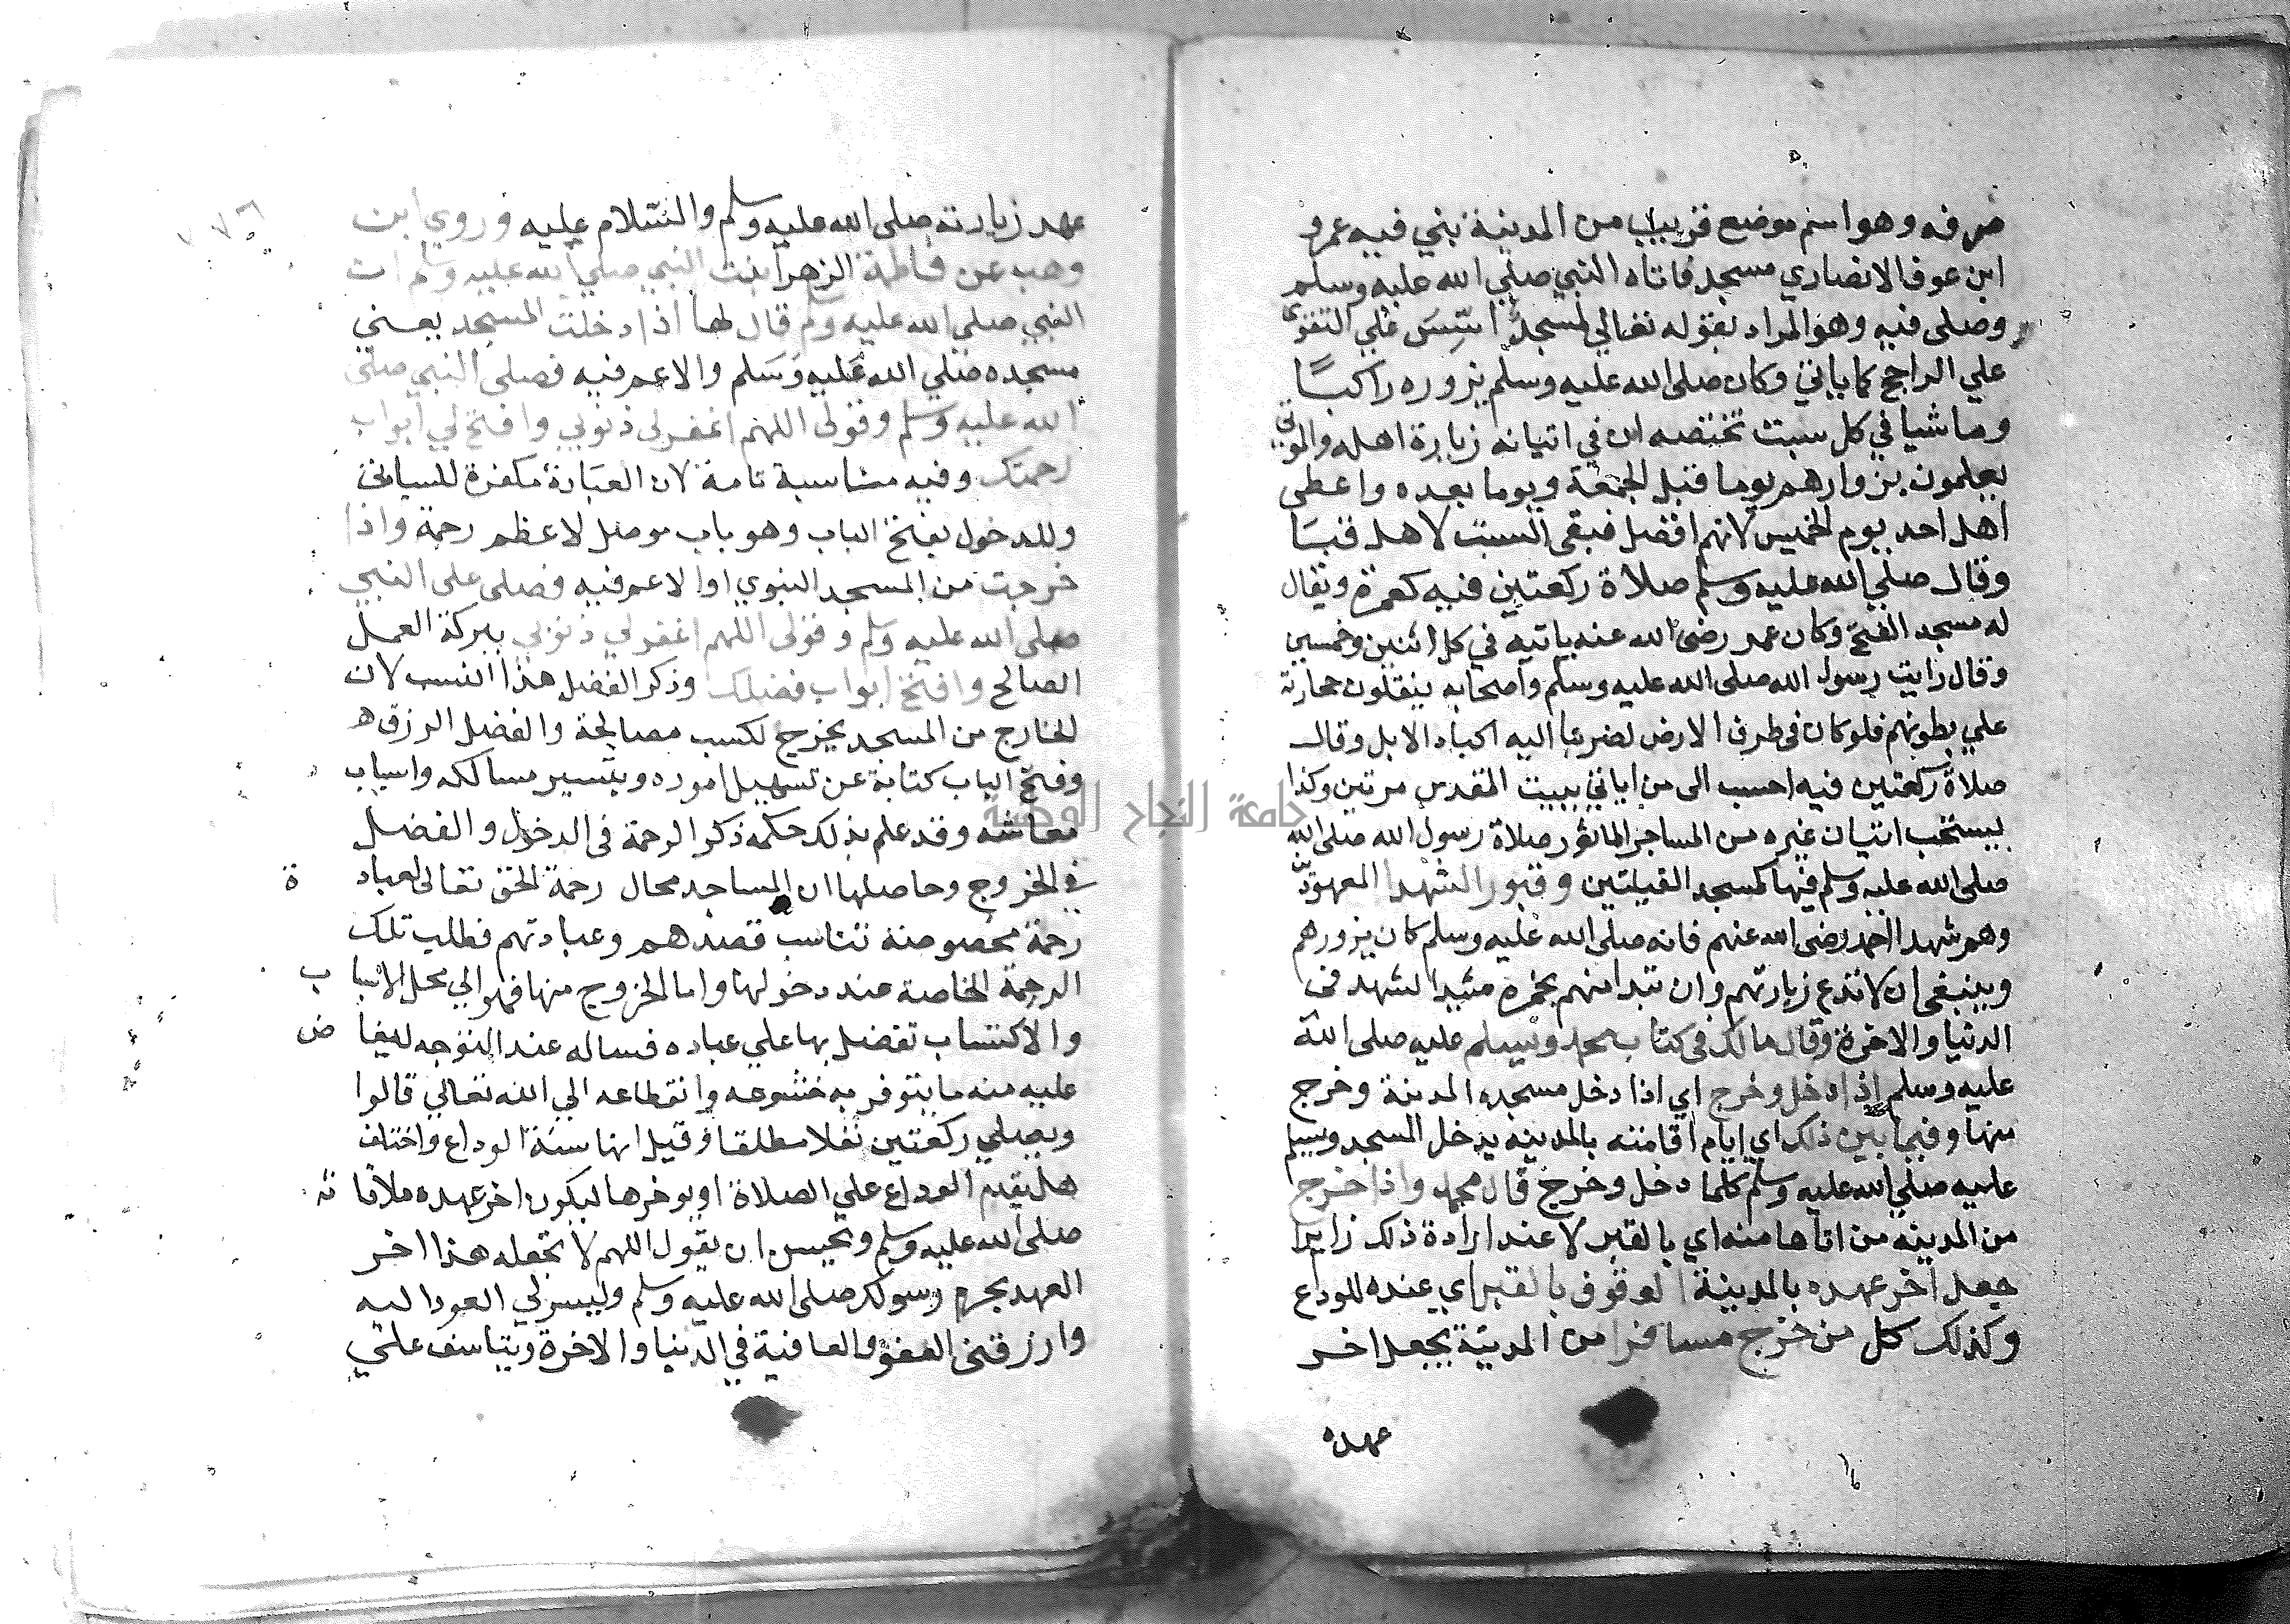 صرفه وهو اسم موضع قريب من المدينة بني فيه عمرو
ابن عوف الانصاري مسجد فاتاه النبي صلي الله عليه وسلم
وصلى فيه وهو المراد بقوله تعالي لمسجد اسِّسَ علي التقوى
علي الراجح كما ياتي وكان صلى الله عليه وسلم يزوره راكبًا
وماشيا في كل سبت تختصه لان في اتيانه زيارة اهله والموتي
يعلمون بزوارهم يوما قبل الجمعة ويوما بعده واعطى
اهل احد يوم الخميس لانهم افضل فبقى السبت لاهل قبا
وقال صلي الله عليه وسلم صلاة ركعتين فيه كعمرة ويقال
له مسجد الفتح وكان عمر رضى الله عنه ياتيه في كل اثنين وخميس
وقال رايت رسول الله صلى الله عليه وسلم واصحابه ينقلون حجارته
علي بطونهم فلو كان في طرف الارض لضربنا اليه اكباد الابل وقال
صلاة ركعتين فيه احب الى من ان اتي بيت المقدس مرتين وكذا
يستحب اتيان غيره من المساجد الماثور صلاة رسول الله صلى الله
صلى الله عليه وسلم فيها كمسجد القبلتين وقبور الشهدا المعهودين
وهم شهدا احد رضى الله عنهم فانه صلى الله عليه وسلم كان يزورهم
وينبغى ان لا تدع زيارتهم وان تبدا منهم بحمزة سيد الشهدا فى
الدنيا والاخرة وقال مالك فى كتاب محمد ويسلم عليه صلى الله
عليه وسلم اذا دخل وخرج اي اذا دخل مسجده المدينة وخرج
منها وفيما بين ذلك اي ايام اقامته بالمدينه يدخل المسجد ويسلم
عليه صلي الله عليه وسلم كلما دخل وخرج قال محمد واذا خرج
من المدينه من اتاها منه اي بالقبر لا عند ارادة ذلك زايرا
جعل اخر عهده بالمدينة الوقوف بالقبر اي عنده للوداع
وكذلك كل من خرج مسافرا من المدينة يجعل اخر
عهده
عهد زيارته صلى الله عليه وسلم والسلام عليه وروي ابن
وهب عن فاطمة الزهرا بنت النبي صلي الله عليه وسلم ان
النبي صلى الله عليه وسلم قال لها اذا دخلت المسجد يعني
مسجده صلي الله عليه وسلم والاعم فيه فصلى النبي صلى
الله عليه وسلم وقولى اللهم اغفر لى ذنوبي وافتح لي ابواب
رحمتك وفيه مناسبة تامة لان العبادة مكفرة للسيات
وللدخول بفتح الباب وهو باب موصل لاعظم رحمة واذا
خرجت من المسجد النبوي او الاعم فيه فصلى على النبي
صلى الله عليه وسلم وقولى اللهم اغفر لي ذنوبي ببركة العمل
الصالح وافتح ابواب فضلك وذكر الفضل هذا انسب لان
الخارج من المسجد يخرج لكسب مصالحة والفضل الرزق
وفتح الباب كناية عن تسهيل اموره وتيسير مسالكه واسباب
معاشه وقد علم بذلك حكمة ذكر الرحمة في الدخول والفضل
في الخروج وحاصلها ان المساجد محال رحمة الحق تعالى لعبادة
رحمة مخصوصة تناسب قصدهم وعبادتهم فطلب تلك
الرحمة الخاصة عند دخولها واما الخروج منها فهو الي محل الاسباب
والاكتساب تفضل بها علي عباده فساله عند التوجه ليفاض
عليه منه ما يتوفر به خشوعه وانقطاعه الي الله تعالي قالوا
ويصلي ركعتين نفلا مطلقا وقيل انها سنة الوداع واختلف
هل يقدم الوداع علي الصلاة او يوخرها ليكون اخر عهده ملاقاته
صلى الله عليه وسلم ويحسن ان يقول اللهم لا تجعله هذا اخر
العهد بحرم رسولك صلى الله عليه وسلم ويسر لي العود اليه
وارزقني العفو والعافية في الدنيا والاخرة ويتاسف علي
جامعة النجاح الوطنية